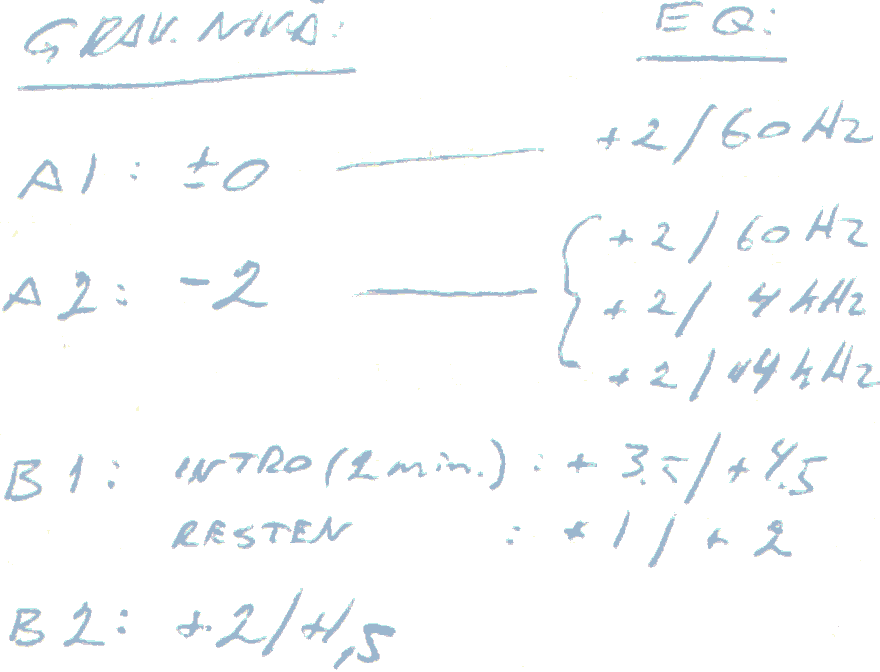 GRAV. NIVÅ: EQ:
A1: ±0 — +2/60Hz
A2: -2 — { +2/60Hz
+2/ 4kHz
+2/14kHz
B1: INTRO (2 min.): +3.5/+4.5
RESTEN : +1/+2
B2: +2/+1,5